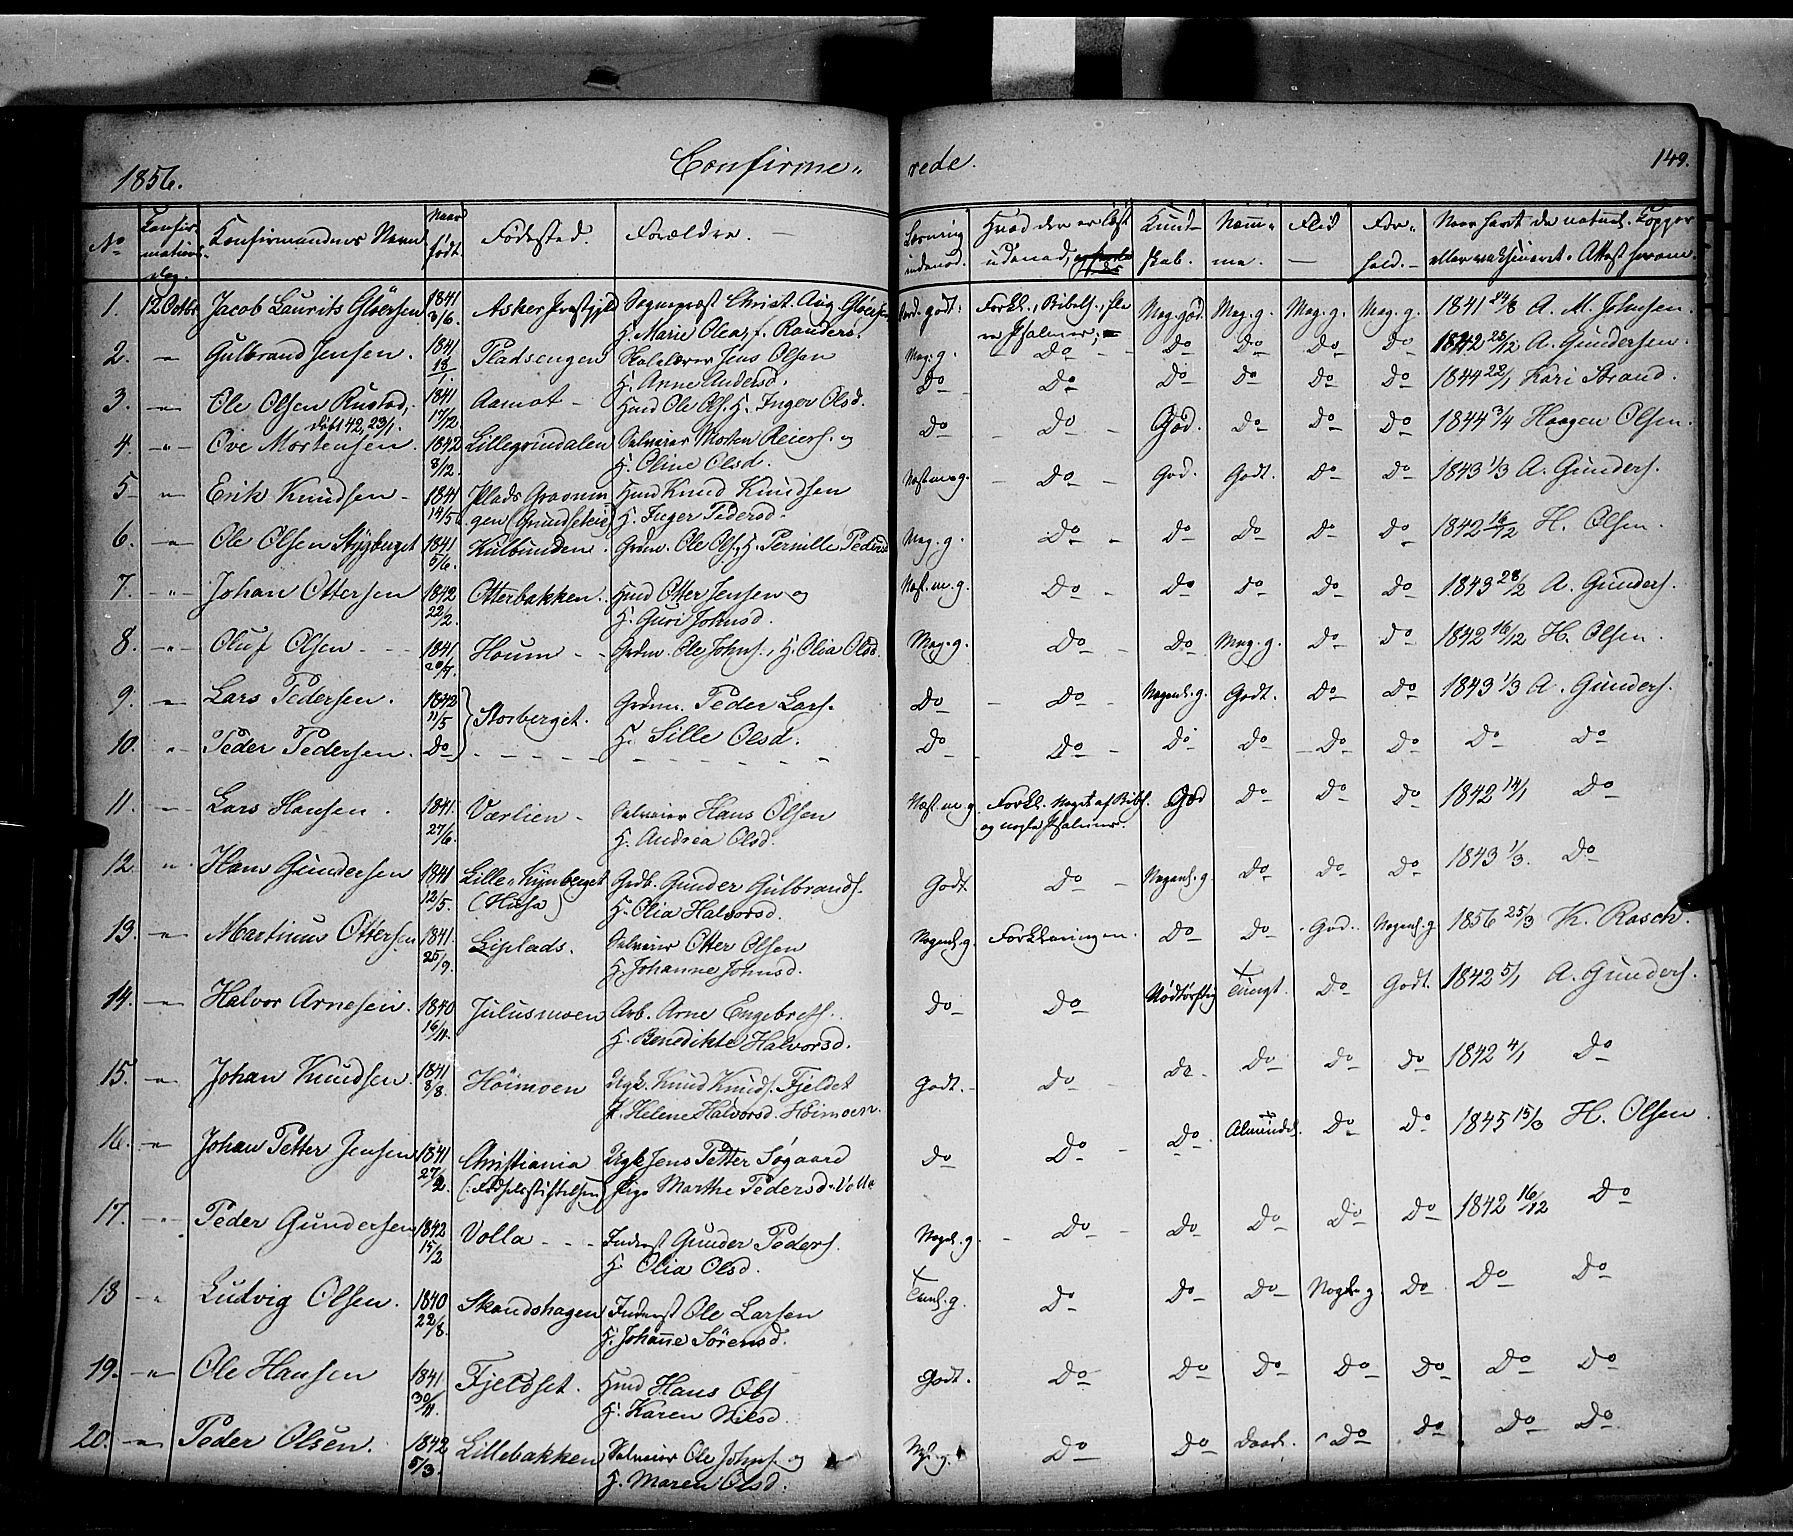 1856. Confirme- rede. 149.
No Konfirmations dag. Konfirmandens Navn Naar født. Fødested. Forældre. Læsning indenad. Hvad der er læst udenad, Kundskab. Nemme. Flid Forhold. Naar havt de naturl. Kopper eller vaksineret. Attest herom.
1. 12 Octbr. Jacob Laurits Gløersen 1841 3/6. Asker Præstgjeld Sognepræst Christ. Aug. Gløersen H. Marie Olea f. Randers. godt: Forkl., Bibelh., flere Psalmer, Meg. god. Meg. g. Meg. g. Meg. g. 1841 24/8 A. M. Johnsen.
2. " Gulbrand Jensen. 1841 18/1. Pladsengen Skolelærer Jens Olsen H. Anne Andersd. Meg. g. Do Do Do Do Do 1842 28/12 A. Gundersen.
3. " Ole Olsen Rustad, 1841 17/2 Aamot Hmd Ole Ols. H. Inger Olsd. Do Do Do Do Do Do 1844 22/1 Kari Strand.
4. " Ove Mortensen. døbt 42, 23/1. 1842 8/12. Lillegrindalen Selveier Morten Reiers. og H. Oline Olsd. Do Do God. Do Do Do 1844 3/4 Haagen Olsen.
5 " Erik Knudsen 1841 14/5 Plads Graonningen (Grundseteie) Hmd Knud Knudsen H. Inger Pedersd. Næst m. g. Do God. Godt. Do Do 1843 1/3 A. Gunders.
6. " Ole Olsen Stygberget 1841 5/6. Kulbunden. Grdm. Ole Ols., H. Pernille Pedersd Meg. g. Do Do Do Do Do 1842 16/12 H. Olsen.
7. " Johan Ottersen 1842 22/2. Otterbakken. Hmd Otter Jensen og H. Guri Johnsd. Næst. m. g. Do Do Do Do Do 1843 28/2 A. Gunders.
8. " Oluf Olsen 1841 20/7. Houm Grdm. Ole Johns., H. Olia Olsd. Meg. g. Do Do Meg. g. Do Do 1842 16/12 H. Olsen.
9. " Lars Pedersen. 1842 11/5 Storberget. Grdm. Peder Lars. H. Sille Olsd. Do Do Nogenl. g. Godt. Do Do 1843 1/3 A. Gunders.
10. " Peder Pedersen. Do Do Do Do Do Do Do Do Do
11. " Lars Hansen. 1841. 27/6. Værlien Selveier Hans Olsen H. Andrea Olsd. Næst. m. g. Forkl. Noget af Bibh. og nogle Psalmer. God Do Do Do 1842 14/1 Do
12 " Hans Gundersen 1841 12/5. Lille Kynberget (Husa) Grdb. Gunder Gulbrands. H. Olia Halvorsd. Godt Do Nogenl. g. Do Do Do 1843 1/3. Do
13. " Martinus Ottersen 1841. 25/9. Liplads. Selveier Otter Olsen H. Johanne Johnsd. Nogenl. g. Forklaringen. Do Do God. Nogenl. g. 1856 25/3 K. Rasch.
14. " Halvor Arnesen 1840 16/11. Julusmoen Arb. Arne Engebrets. H. Benedikte Halvorsd. Do Do Nødtørftig Tungt. Do Godt. 1842 5/1 A. Gunders.
15. " Johan Knudsen. 1841 8/8. Höimoen Ugk. Knud Knuds. Fjeldet P. Helene Halvorsd. Höimoen. Godt. Do Do Do Do Do 1842 4/1 Do
16. " Johan Petter Jensen 1841 27/2. Christiania (Fødselsstiftelsen) Ugk Jens Petter Søgaard Pige Marthe Pedersd. Volla Do Do Do. Almindel. Do Do 1845 15/3 H. Olsen
17. " Peder Gundersen 1842 15/2 Volla Inderst Gunder Peders. H. Olia Olsd. Nogenl. g. Do Do Do Do Do 1842 16/12 Do
18 " Ludvig Olsen. 1840 22/8. Skandshagen Inderst Ole Larsen H. Johanne Sörensd. Temel. g. Do Do Do Nogl. g. Do Do Do
19. " Ole Hansen 1841 30/11. Fjeldset. Hmd Hans Ols H. Karen Nilsd. Godt. Do Do Do Do Do Do Do
20. " Peder Olsen. 1842 5/3. Lillebakken Selveier Ole Johns. og H. Maren Olsd. Ngl. g. Do Do Do Do Do Do